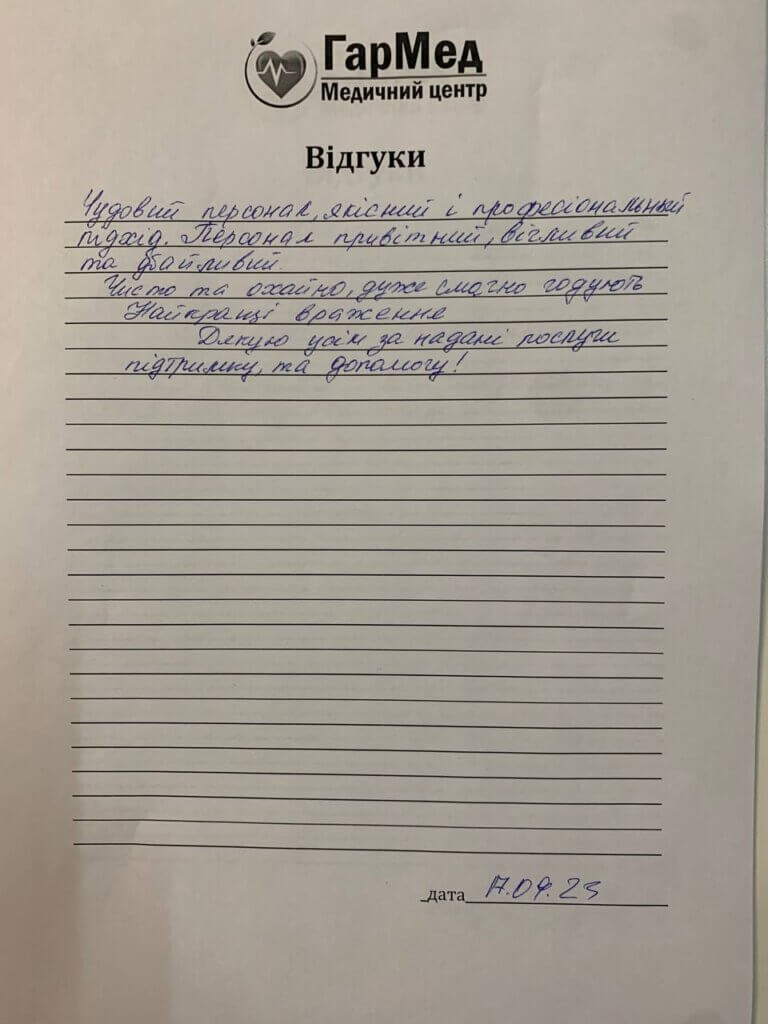 ГарМед
Медичний центр
Відгуки
Чудовий персонал, якісний і професіональний
підхід. Персонал привітний, вічливий
та дбайливий.
Чисто та охайно, дуже смачно годують
Найкращі враження
Дякую усім за надані послуги
підтримку, та допомогу!
дата 17.09.23